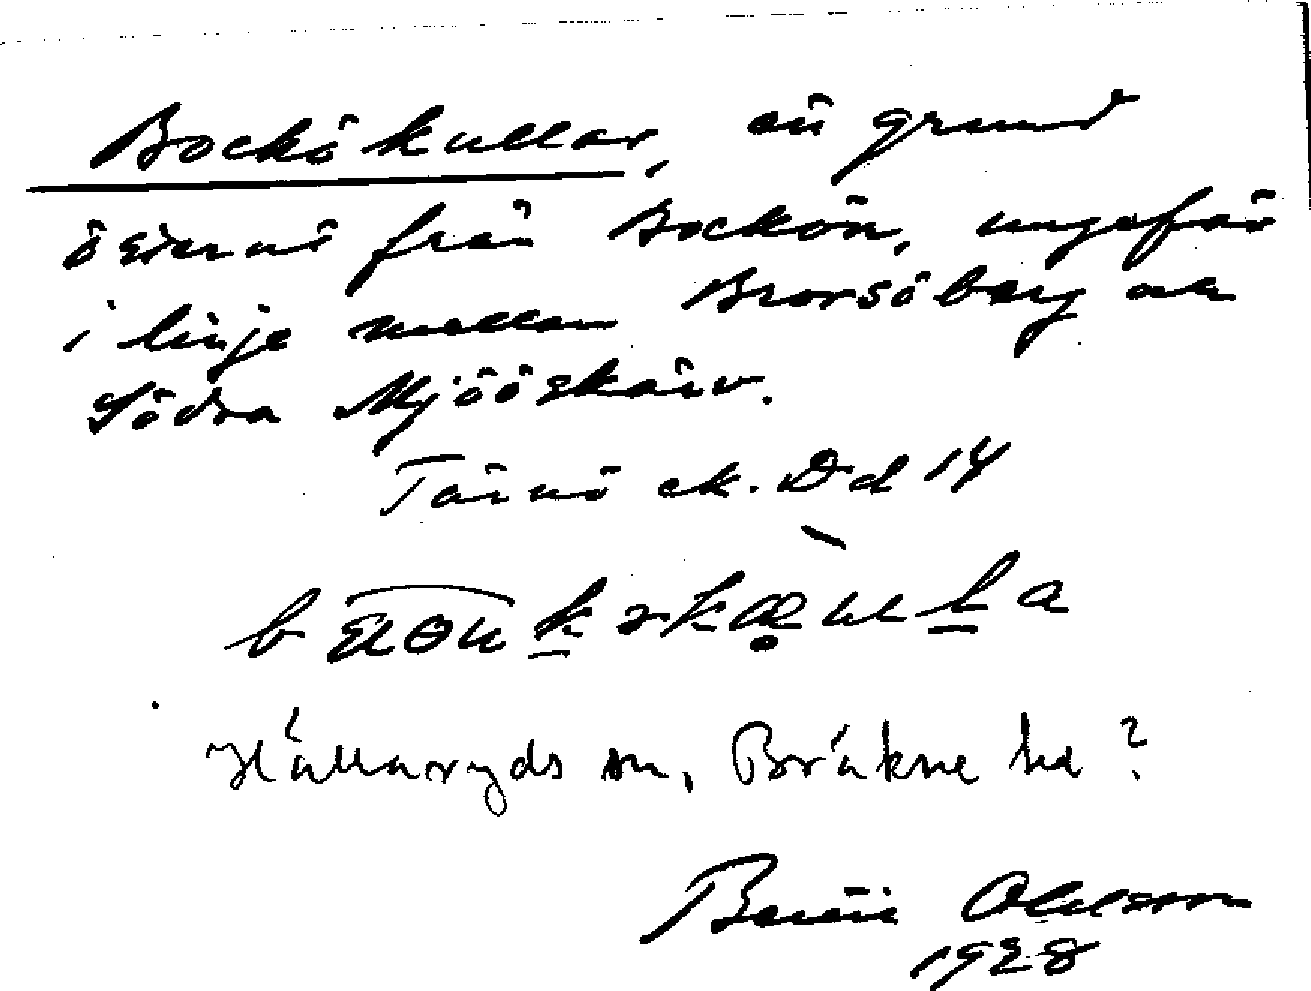 Bockökullar, ett grund
österut från Bockön, ungefär
i linje mellan Brorsöberg och
Södra Mjööskärv.
Tärnö ek. Bd 14
Hällaryds sn, Bräkne hd?
Bertil Ohlsson
1928